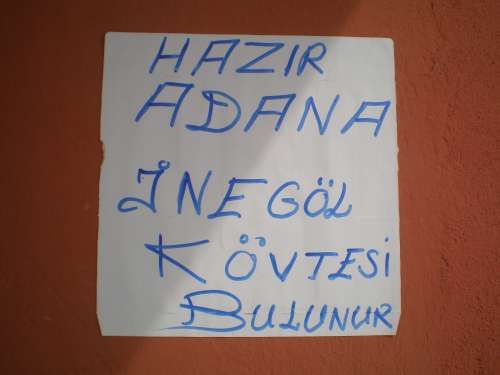 HAZIR
ADANA
İNEGÖL
KÖVTESİ
BULUNUR